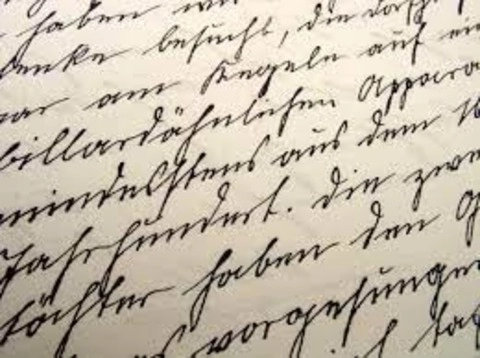 haben wi
enke besucht, die dasz
war am Kegeln auf ei
billardähnlichen Appara
mindesstens aus dem 16
Jahrhundert. Die zwe
töchter haben den G
vorgesungen
ich ta